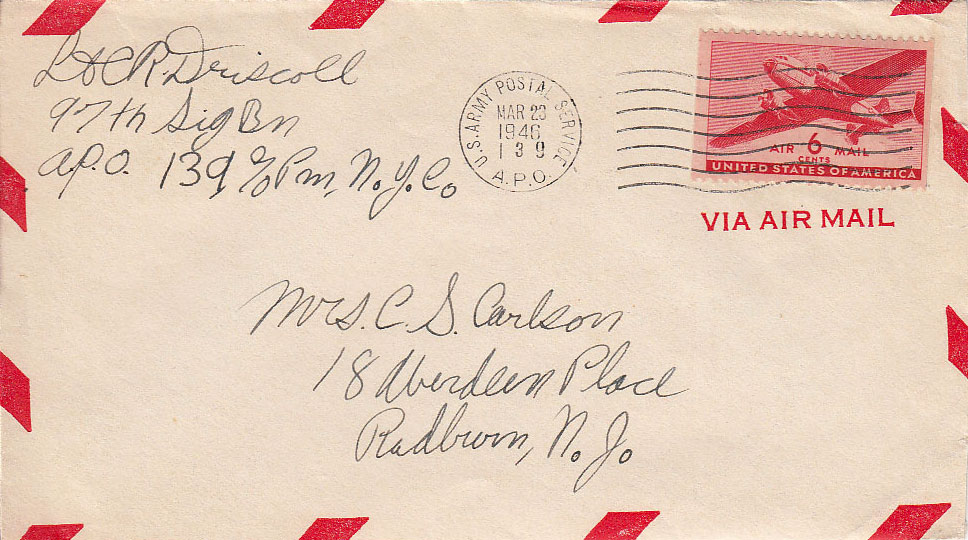 Lt C R Driscoll
97th Sig Bn
A.P.O. 139 c/o Pm, N.Y.C.
U.S. ARMY POSTAL SERVICE
MAR 23
1946
1 3 9
A.P.O.
AIR 6 MAIL
CENTS
UNITED STATES OF AMERICA
VIA AIR MAIL
Mrs. C. S. Carlson
18 Aberdeen Place
Radburn, N. J.